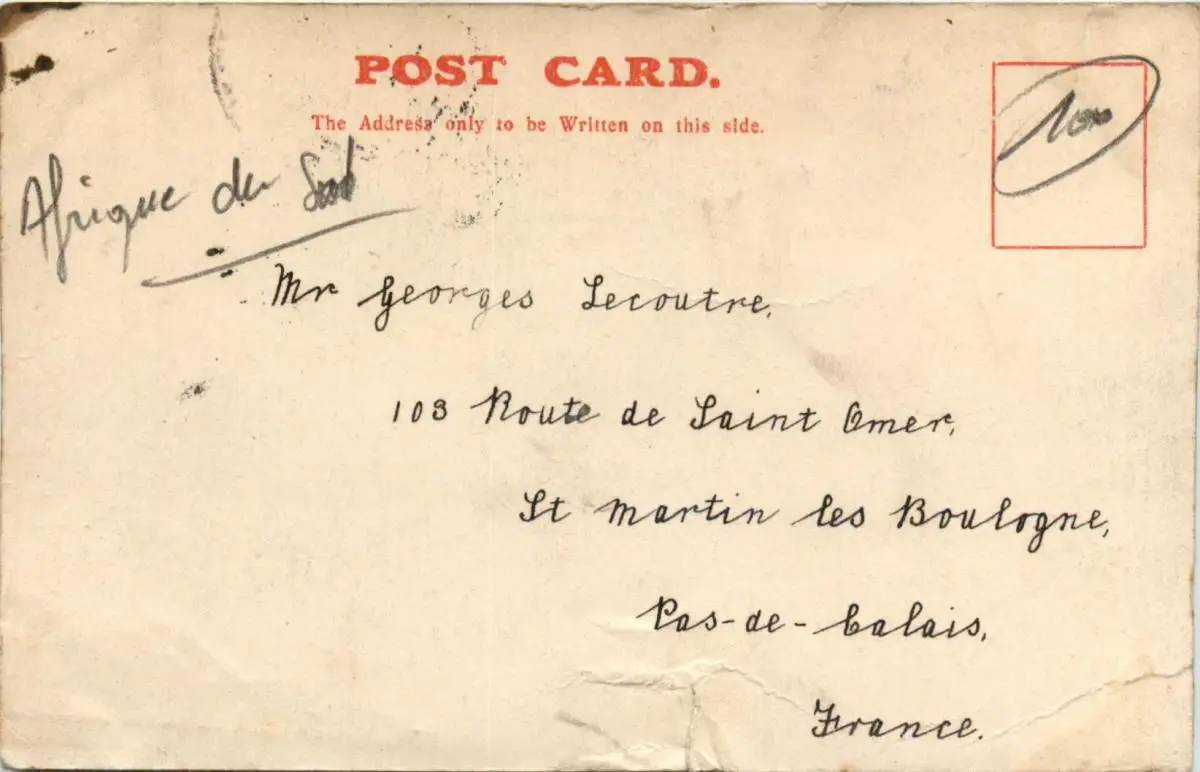 POST CARD.
The Address only to be Written on this side.
Afrique du Sud
Mr Georges Lecoutre,
103 Route de Saint Omer,
St Martin les Boulogne,
Pas-de-Calais,
France.